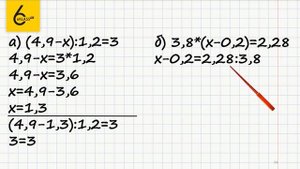 6
КЛАСС
а) (4,9-х):1,2=3
4,9-х=3*1,2
4,9-х=3,6
х=4,9-3,6
х=1,3
(4,9-1,3):1,2=3
3=3
б) 3,8*(х-0,2)=2,28
х-0,2=2,28:3,8